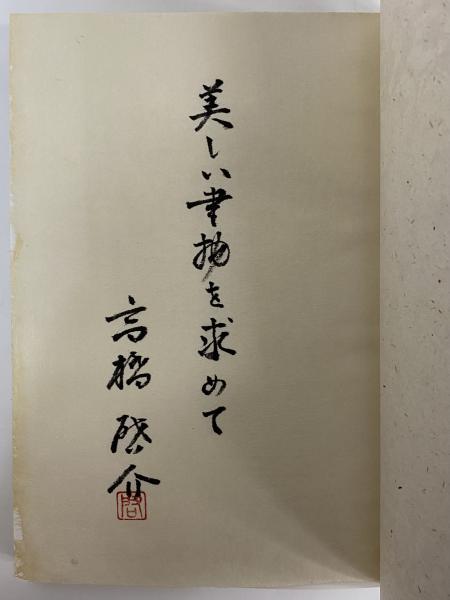 美しい書物を求めて
高橋啓介
啓